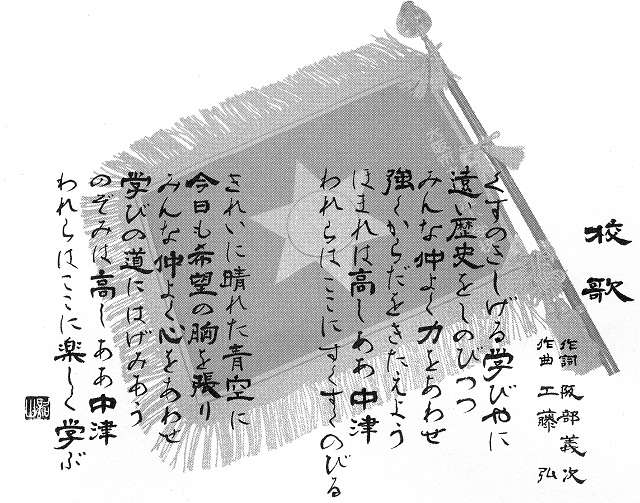 校歌
作詞 阪部義次
作曲 工藤 弘
くすのきしげる学びやに
遠い歴史をしのびつつ
みんな仲よく力をあわせ
強くからだをきたえよう
ほまれは高しああ中津
われらはここにすくすくのびる
きれいに晴れた青空に
今日も希望の胸を張り
みんな仲よく心をあわせ
学びの道にはげみあう
のぞみは高しああ中津
われらはここに楽しく学ぶ